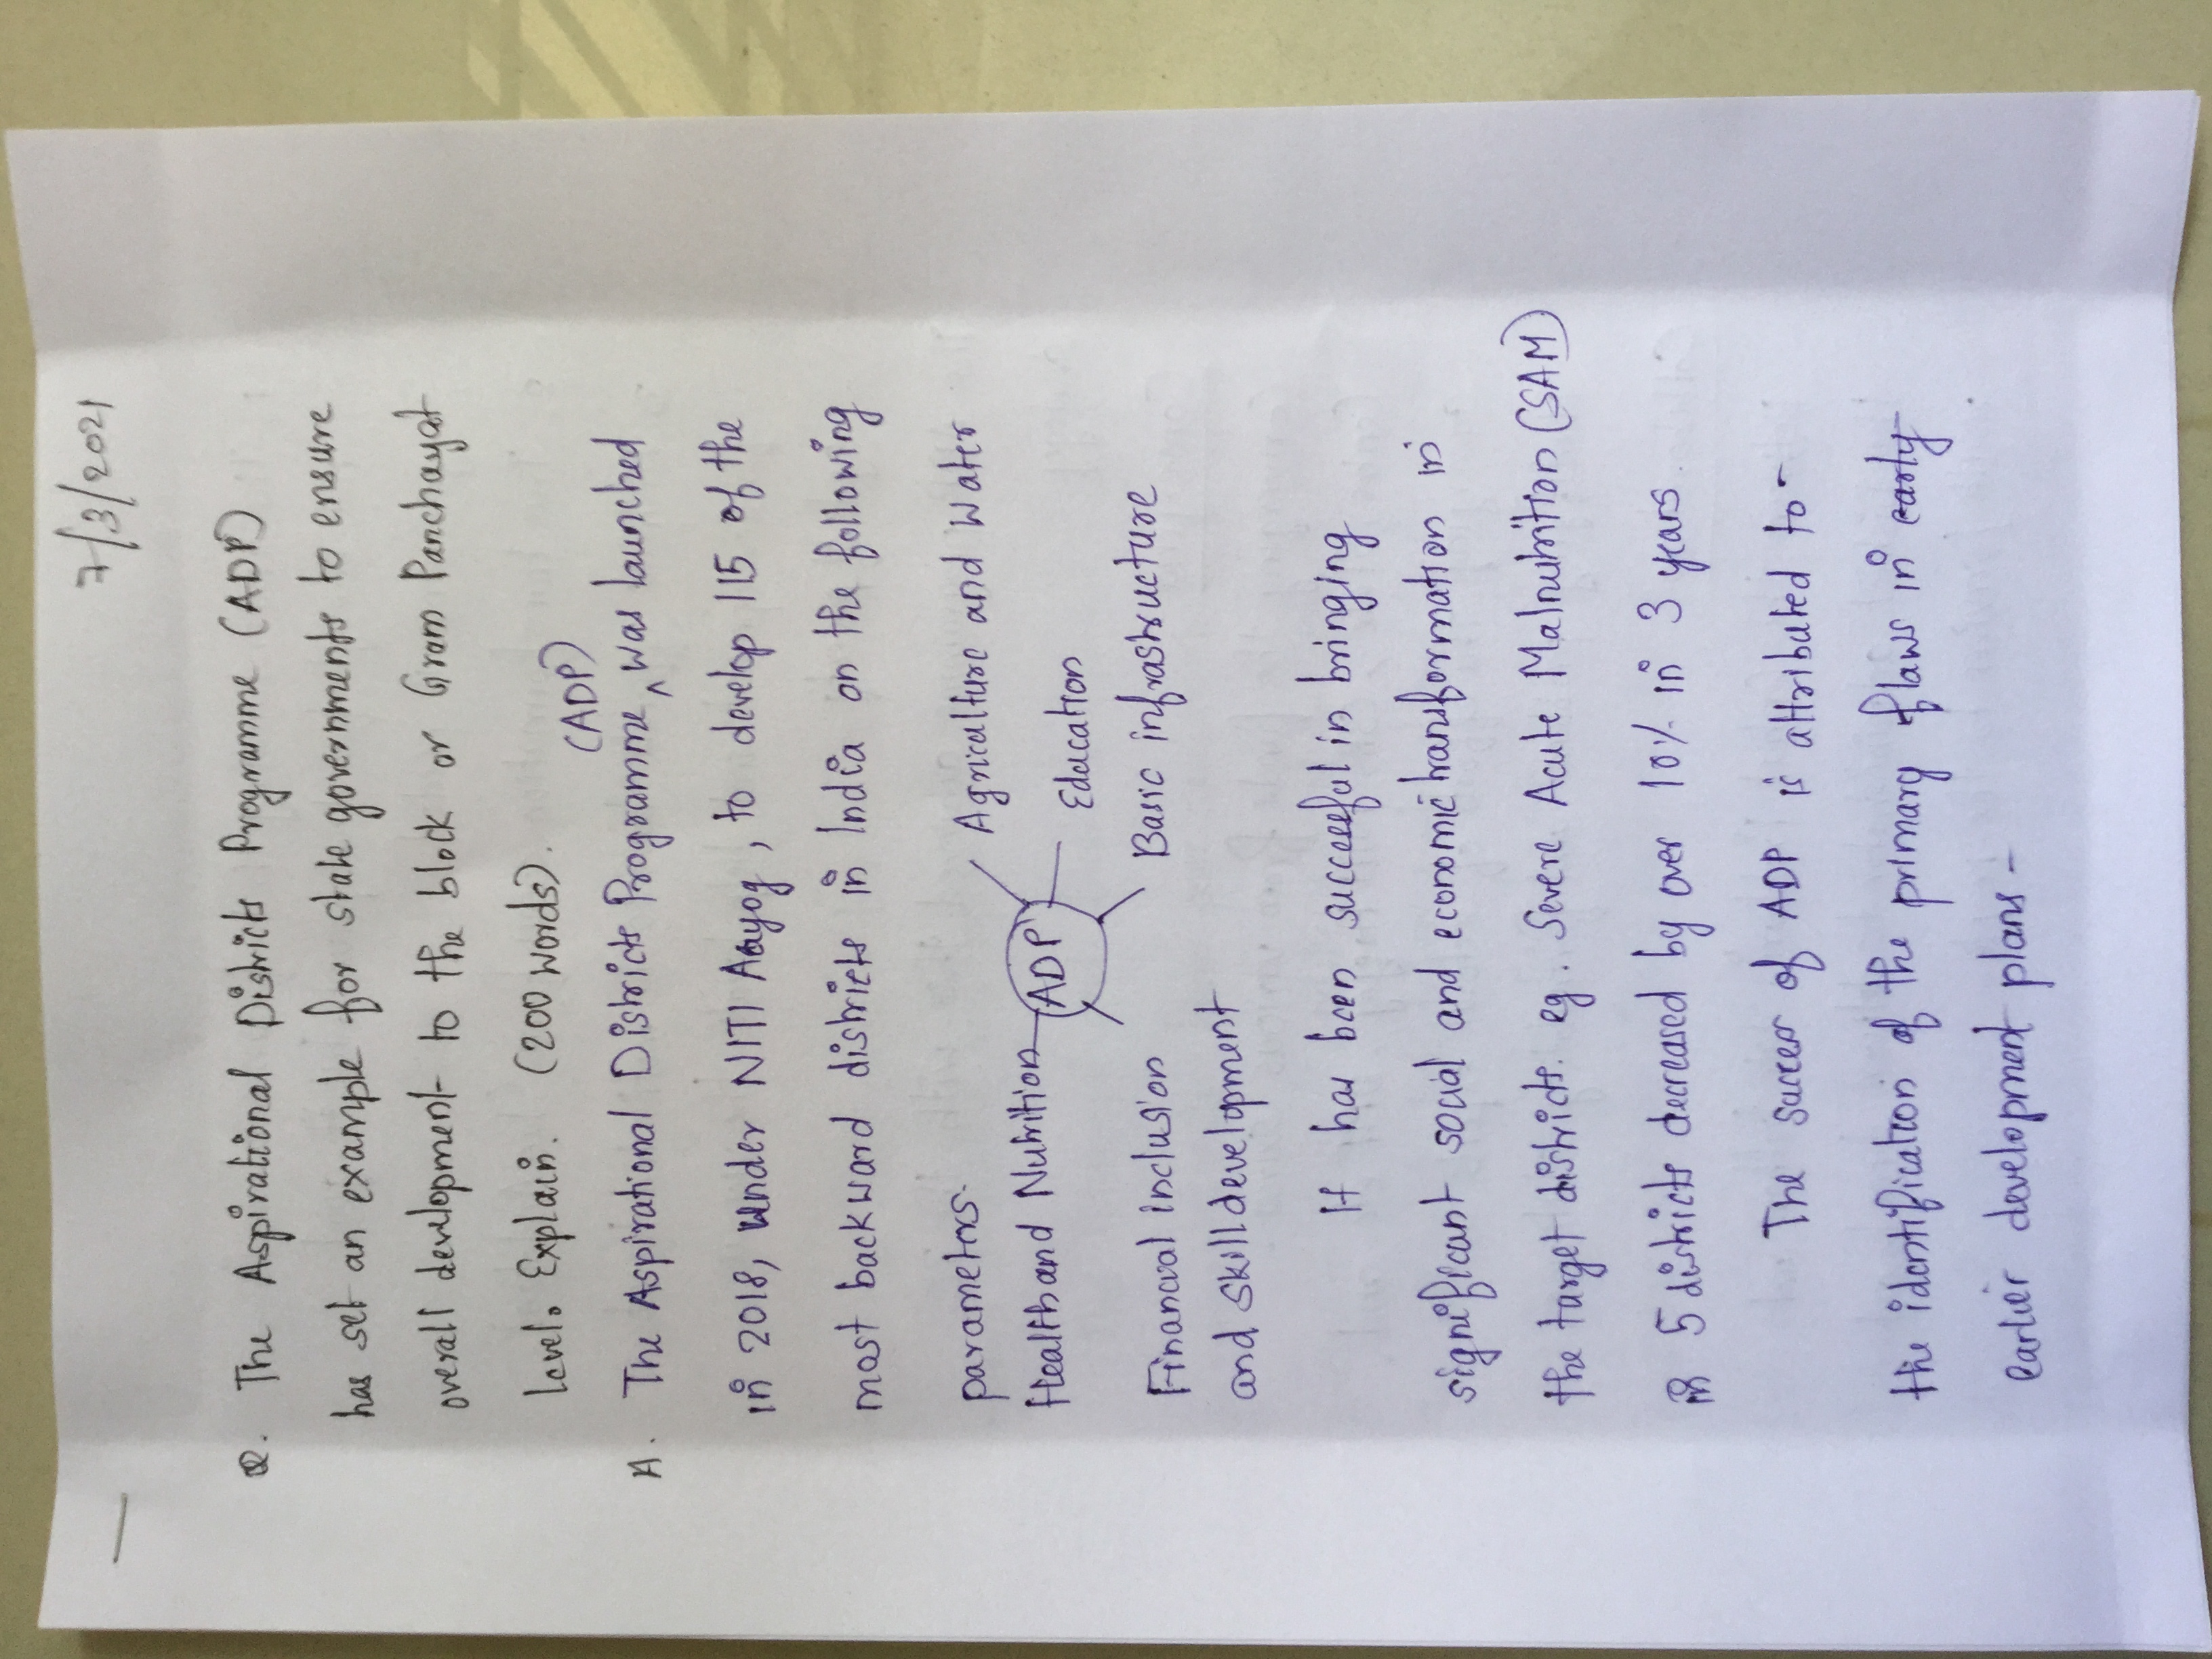 7/3/2021
Q. The Aspirational Districts Programme (ADP)
has set an example for state governments to ensure
overall development to the block or Gram Panchayat
level. Explain. (200 words).
(ADP)
A. The Aspirational Districts Programme ^ was launched
in 2018, under NITI Aayog, to develop 115 of the
most backward districts in India on the following
parameters-
Agriculture and Water
Health and Nutrition
ADP
Education
Financial inclusion
and skill development
Basic infrastructure
It has been successful in bringing
significant social and economic transformation in
the target districts. eg. Severe Acute Malnutrition (SAM)
in 5 districts decreased by over 10% in 3 years.
The success of ADP is attributed to-
the identification of the primary flaws in early
earlier development plans-